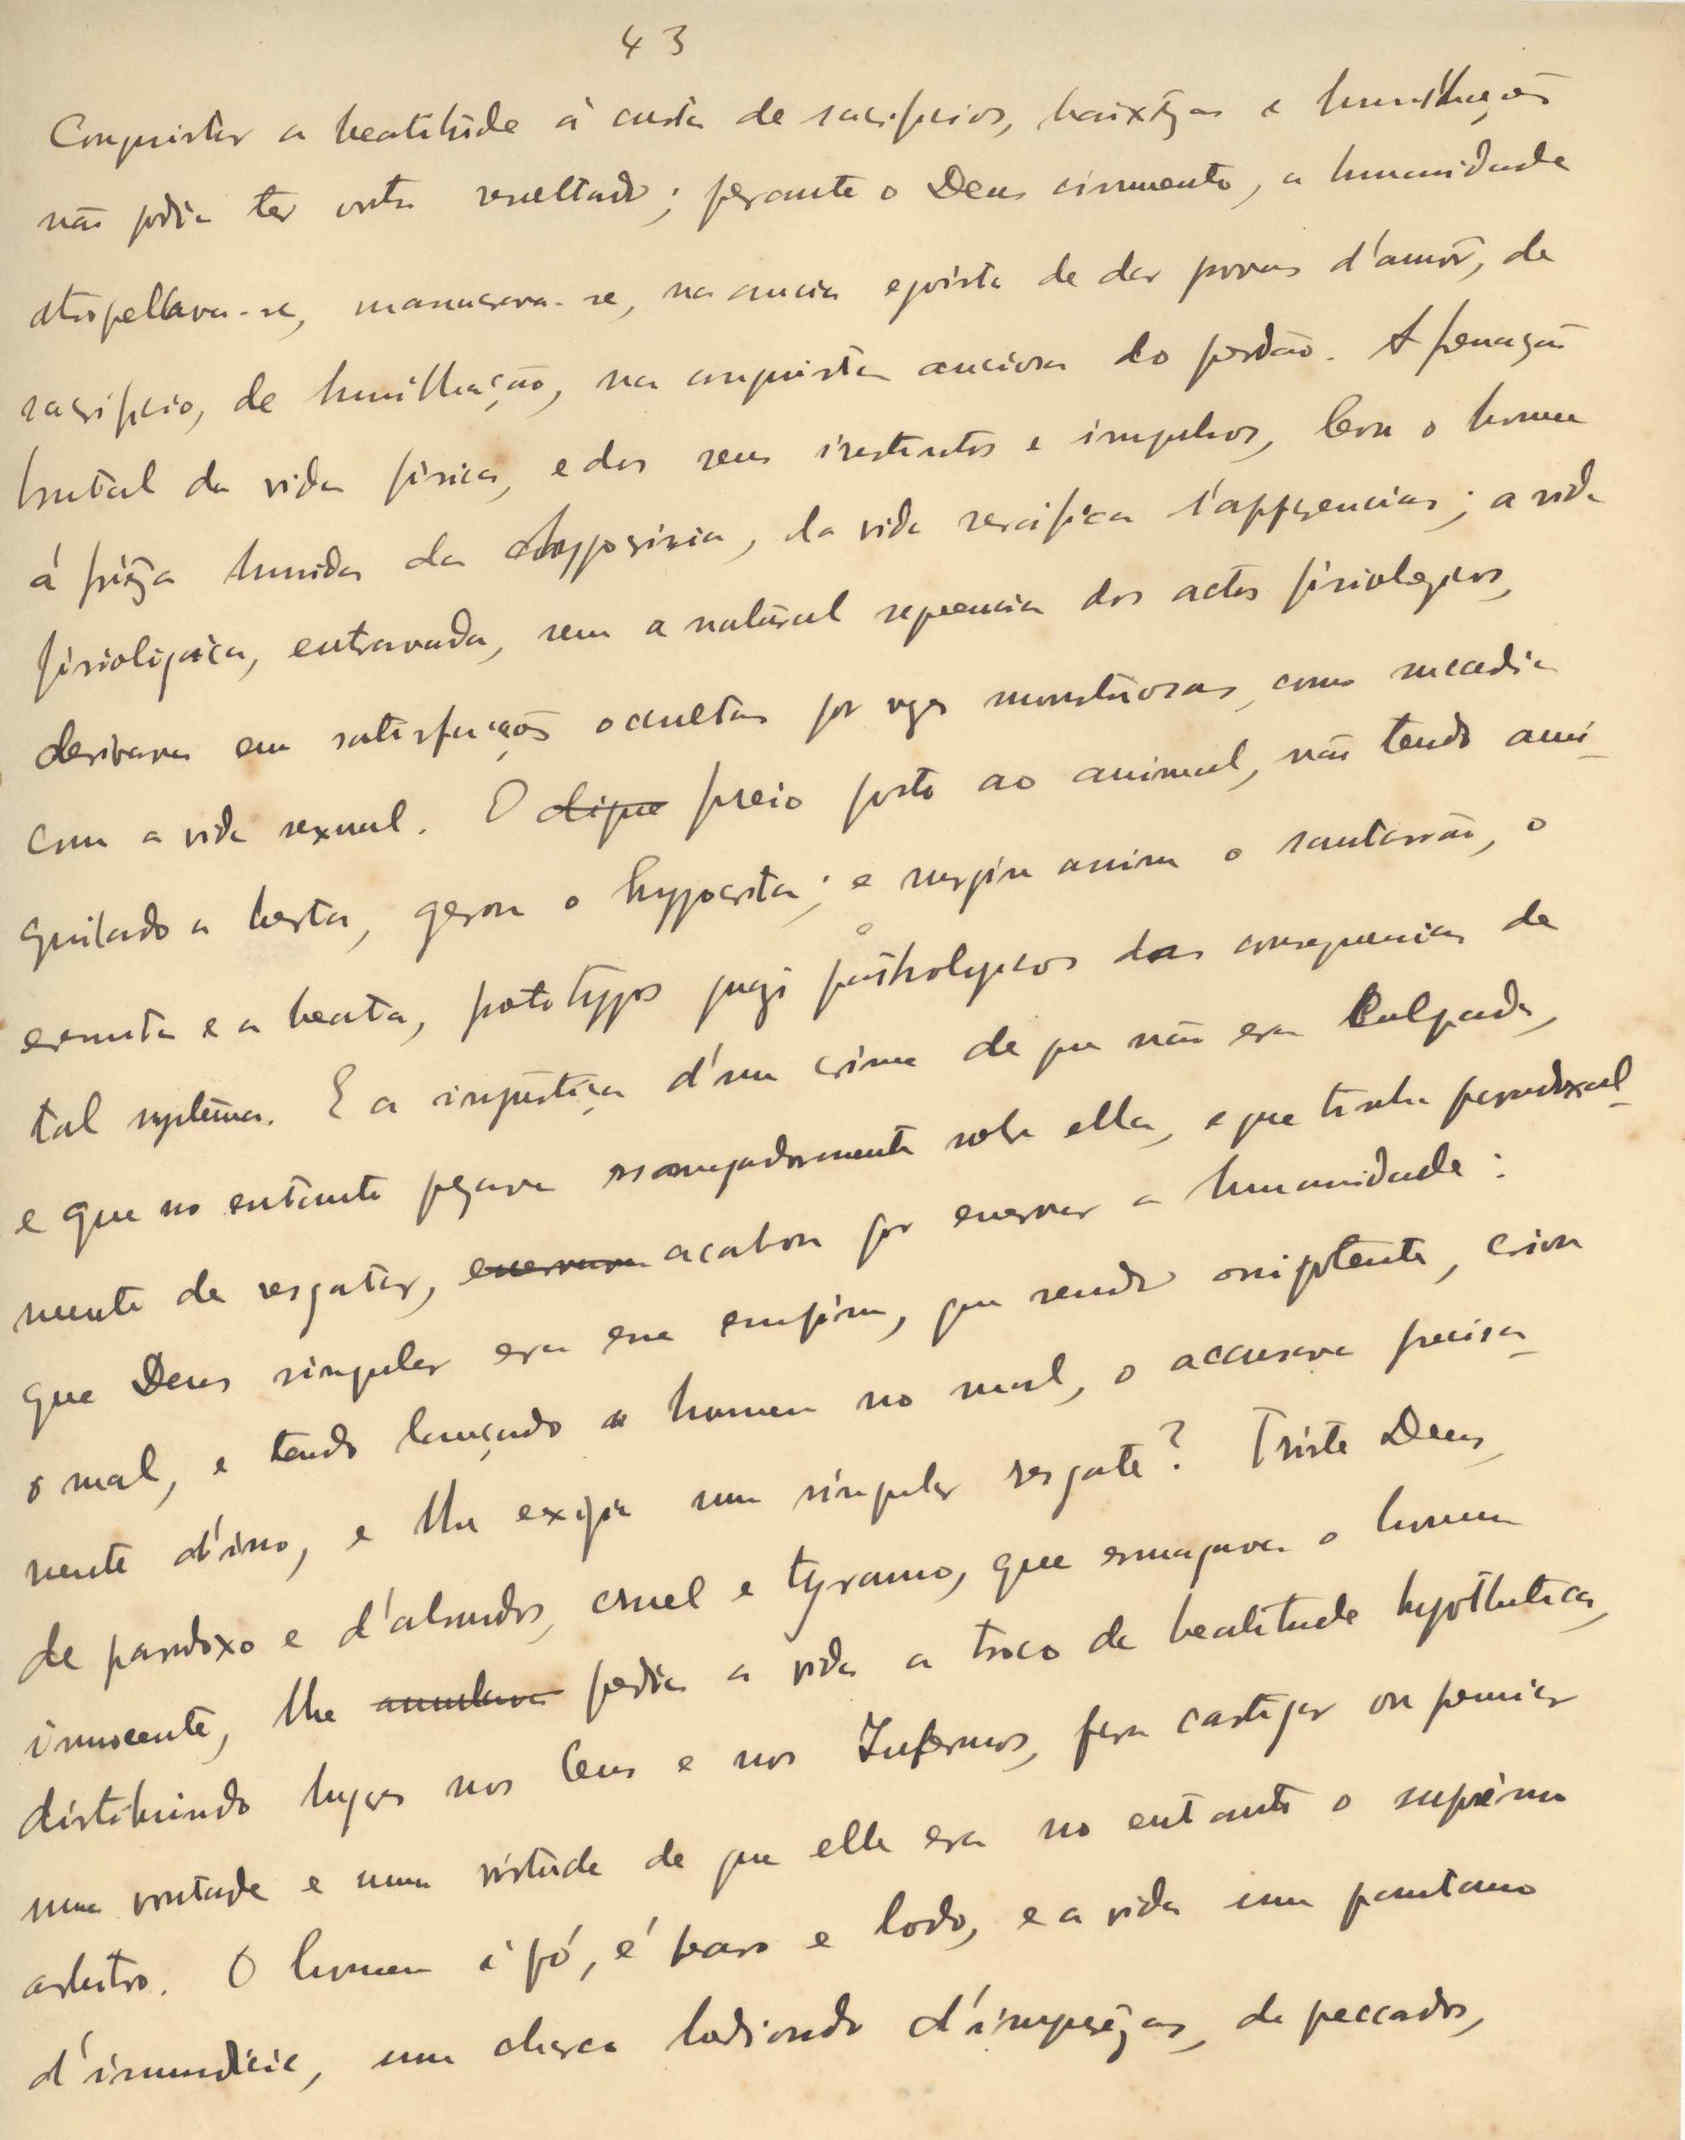 43
Conquistar a beatitude á custa de sacrificios, baixezas e humilhações
não podia ter outro resultado; perante o Deus ciumento, a humanidade
atropellava-se, massacrava-se, na ancia egoista de dar provas d'amôr, de
sacrificio, de humilhação, na conquista anciosa do perdão. A
brutal da vida fisica, e dos seus instintos e impulsos, leva o homem
á humida da hyppocrisia, da vida d'apparencias; a vida
fisiologica, entravada, sem a natural sequencia dos actos fisiologicos,
derivava em satisfações occultas por vezes monstruosas, como succedia
com a vida sexual. O dique freio posto ao animal, não tendo ani-
quilado a besta, gerou o hyppocrita; e surgiu assim o santarrão, o
ermita e a beata, prototypos quazi pathologicos das consequencias de
tal systema. E a injustiça d'um crime de que não era culpada,
e que no entanto pezava esmagadoramente sobre ella, e que tinha paradoxal-
mente de resgatar, enervava acabou por enervar a humanidade:
que Deus singular era esse emfim, que sendo onipotente, criou
o mal, e tendo lançado o homem no mal, o accusava precisa-
mente d'isso, e lhe exigia um singular resgate? Triste Deus,
de paradoxo e d'absurdos, cruel e tyranno, que esmagava o homem
innocente, lhe annulava pedia a vida a troco da beatitude hypothetica,
distribuindo lugares nos Ceus e nos Infernos, para castigar ou premiar
uma vontade e uma virtude de que elle era no entanto o supremo
arbitro. O homem é pó, é barro e lodo, e a vida um pantano
d'immundicie, um charco hediondo d'impurezas, de peccados,